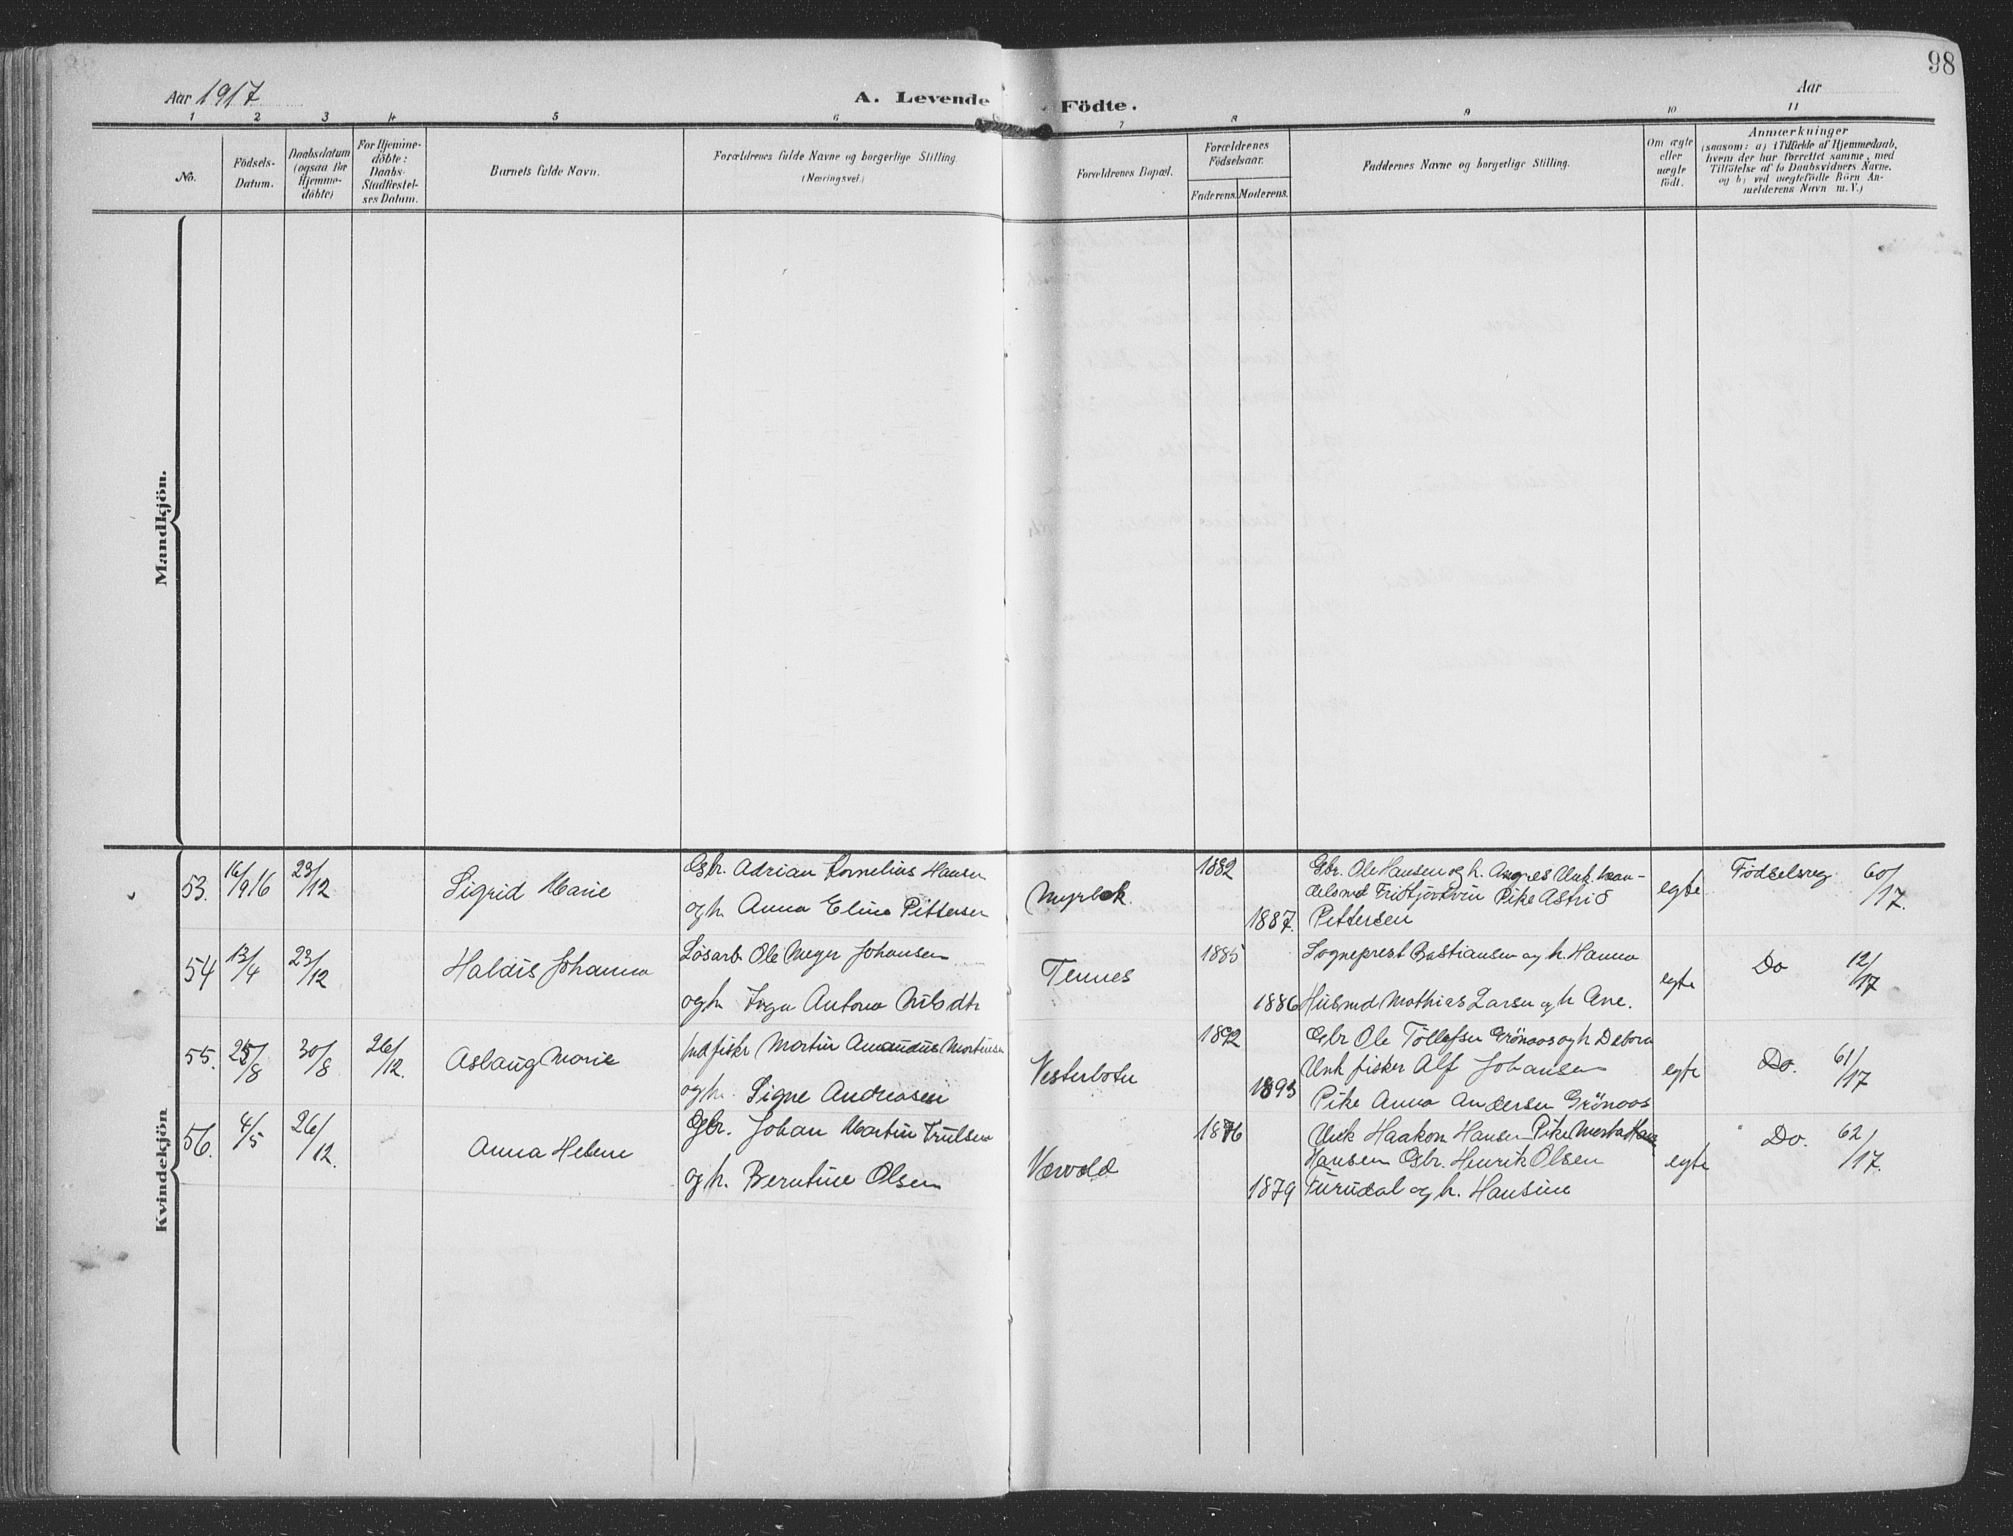 98
Aar 1917
A. Levende Födte.
Aar
1 2 3 4 5 6 7 8 9 10 11
No.
Födsels-Datum.
Daabsdatum (ogsaa for Hjemme-döbte)
For Hjemme-döbte: Daabs-Stadfæstel-ses Datum.
Barnets fulde Navn.
Forældrenes fulde Navne og borgerlige Stilling.
(Næringsvei.)
Forældrenes Bopæl.
Forældrenes Födselsaar.
Faderens. Moderens.
Faddernes Navne og borgerlige Stilling.
Om ægte eller uægte födt.
Anmærkninger
(saasom: a) i Tilfælde af Hjemmedaab,
hvem der har forrettet samme, med
Tilföielse af to Daabsvidners Navne,
og b) ved uægtefödte Börn An-
melderens Navn m. V.)
Mandkjön.
Kvindekjön
53. 16/9 16 23/12 Sigrid Marie
Gbr. Adrian Kornelius Hansen
og h. Anna Eline Pettersen
Myrbok.
1882
1887.
Gbr. Ole Hansen og h. Angnes Unk. han-
delsmd Fridtjov Pike Astrid
Pettersen
egte
Födselsreg. 60/17.
54 13/4 23/12 Haldis Johanna
Løsarb Ole Meyer Johansen
og h. Inga Antona Nilsdtr
Tennes
1885
1886
Sogneprest Bastiansen og h. Hanna
Husmd Mathias Larsen og h Ane.
egte
Do 12/17
55. 25/8 30/8 26/12. Aslaug Marie
Indfiskr Martin Amandus Mortensen
og h. Signe Andreasen
Vesterbotn
1892
1893
Gbr Ole Tollefsen Grönaas og h Debora
Unk fisker Alf Johansen
Pike Anna Andersen Grönaas
egte
Do. 61/17
56. 4/5 26/12. Anna Helene
Gbr. Johan Martin Trulsen
og h. Berntine Olsen
1876
1879
Unk Haakon Hansen Pike Marta
Hansen Gbr. Henrik Olsen
Furudal og h. Hansine
egte
Do. 62/17.